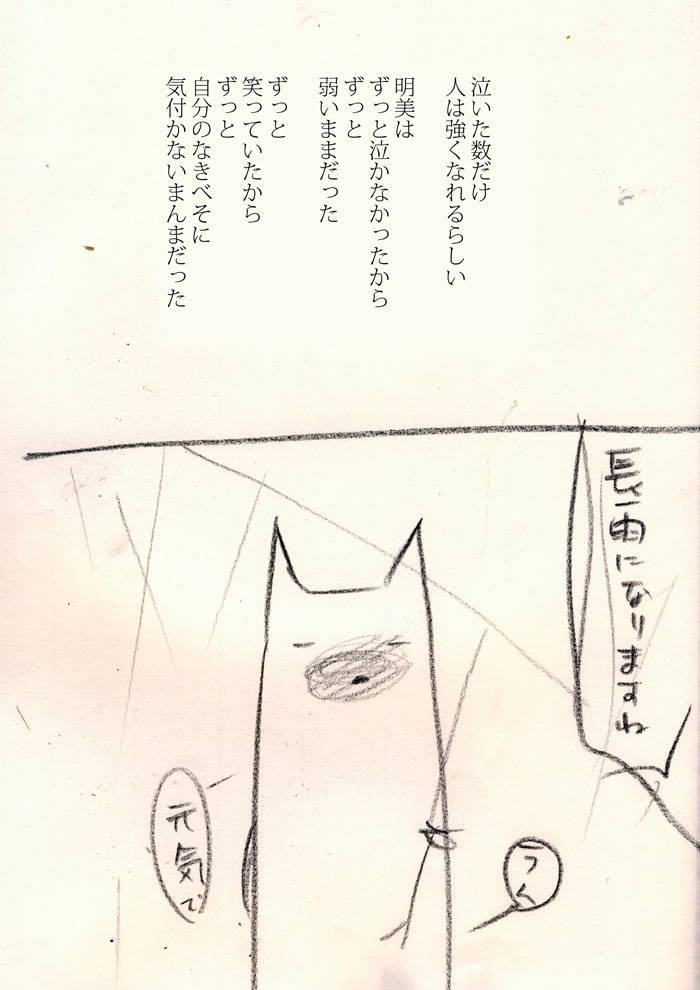 泣いた数だけ
人は強くなれるらしい
明美は
ずっと泣かなかったから
ずっと
弱いままだった
ずっと
笑っていたから
ずっと
自分のなきべそに
気付かないまんまだった
長雨になりますね
うん
元気で